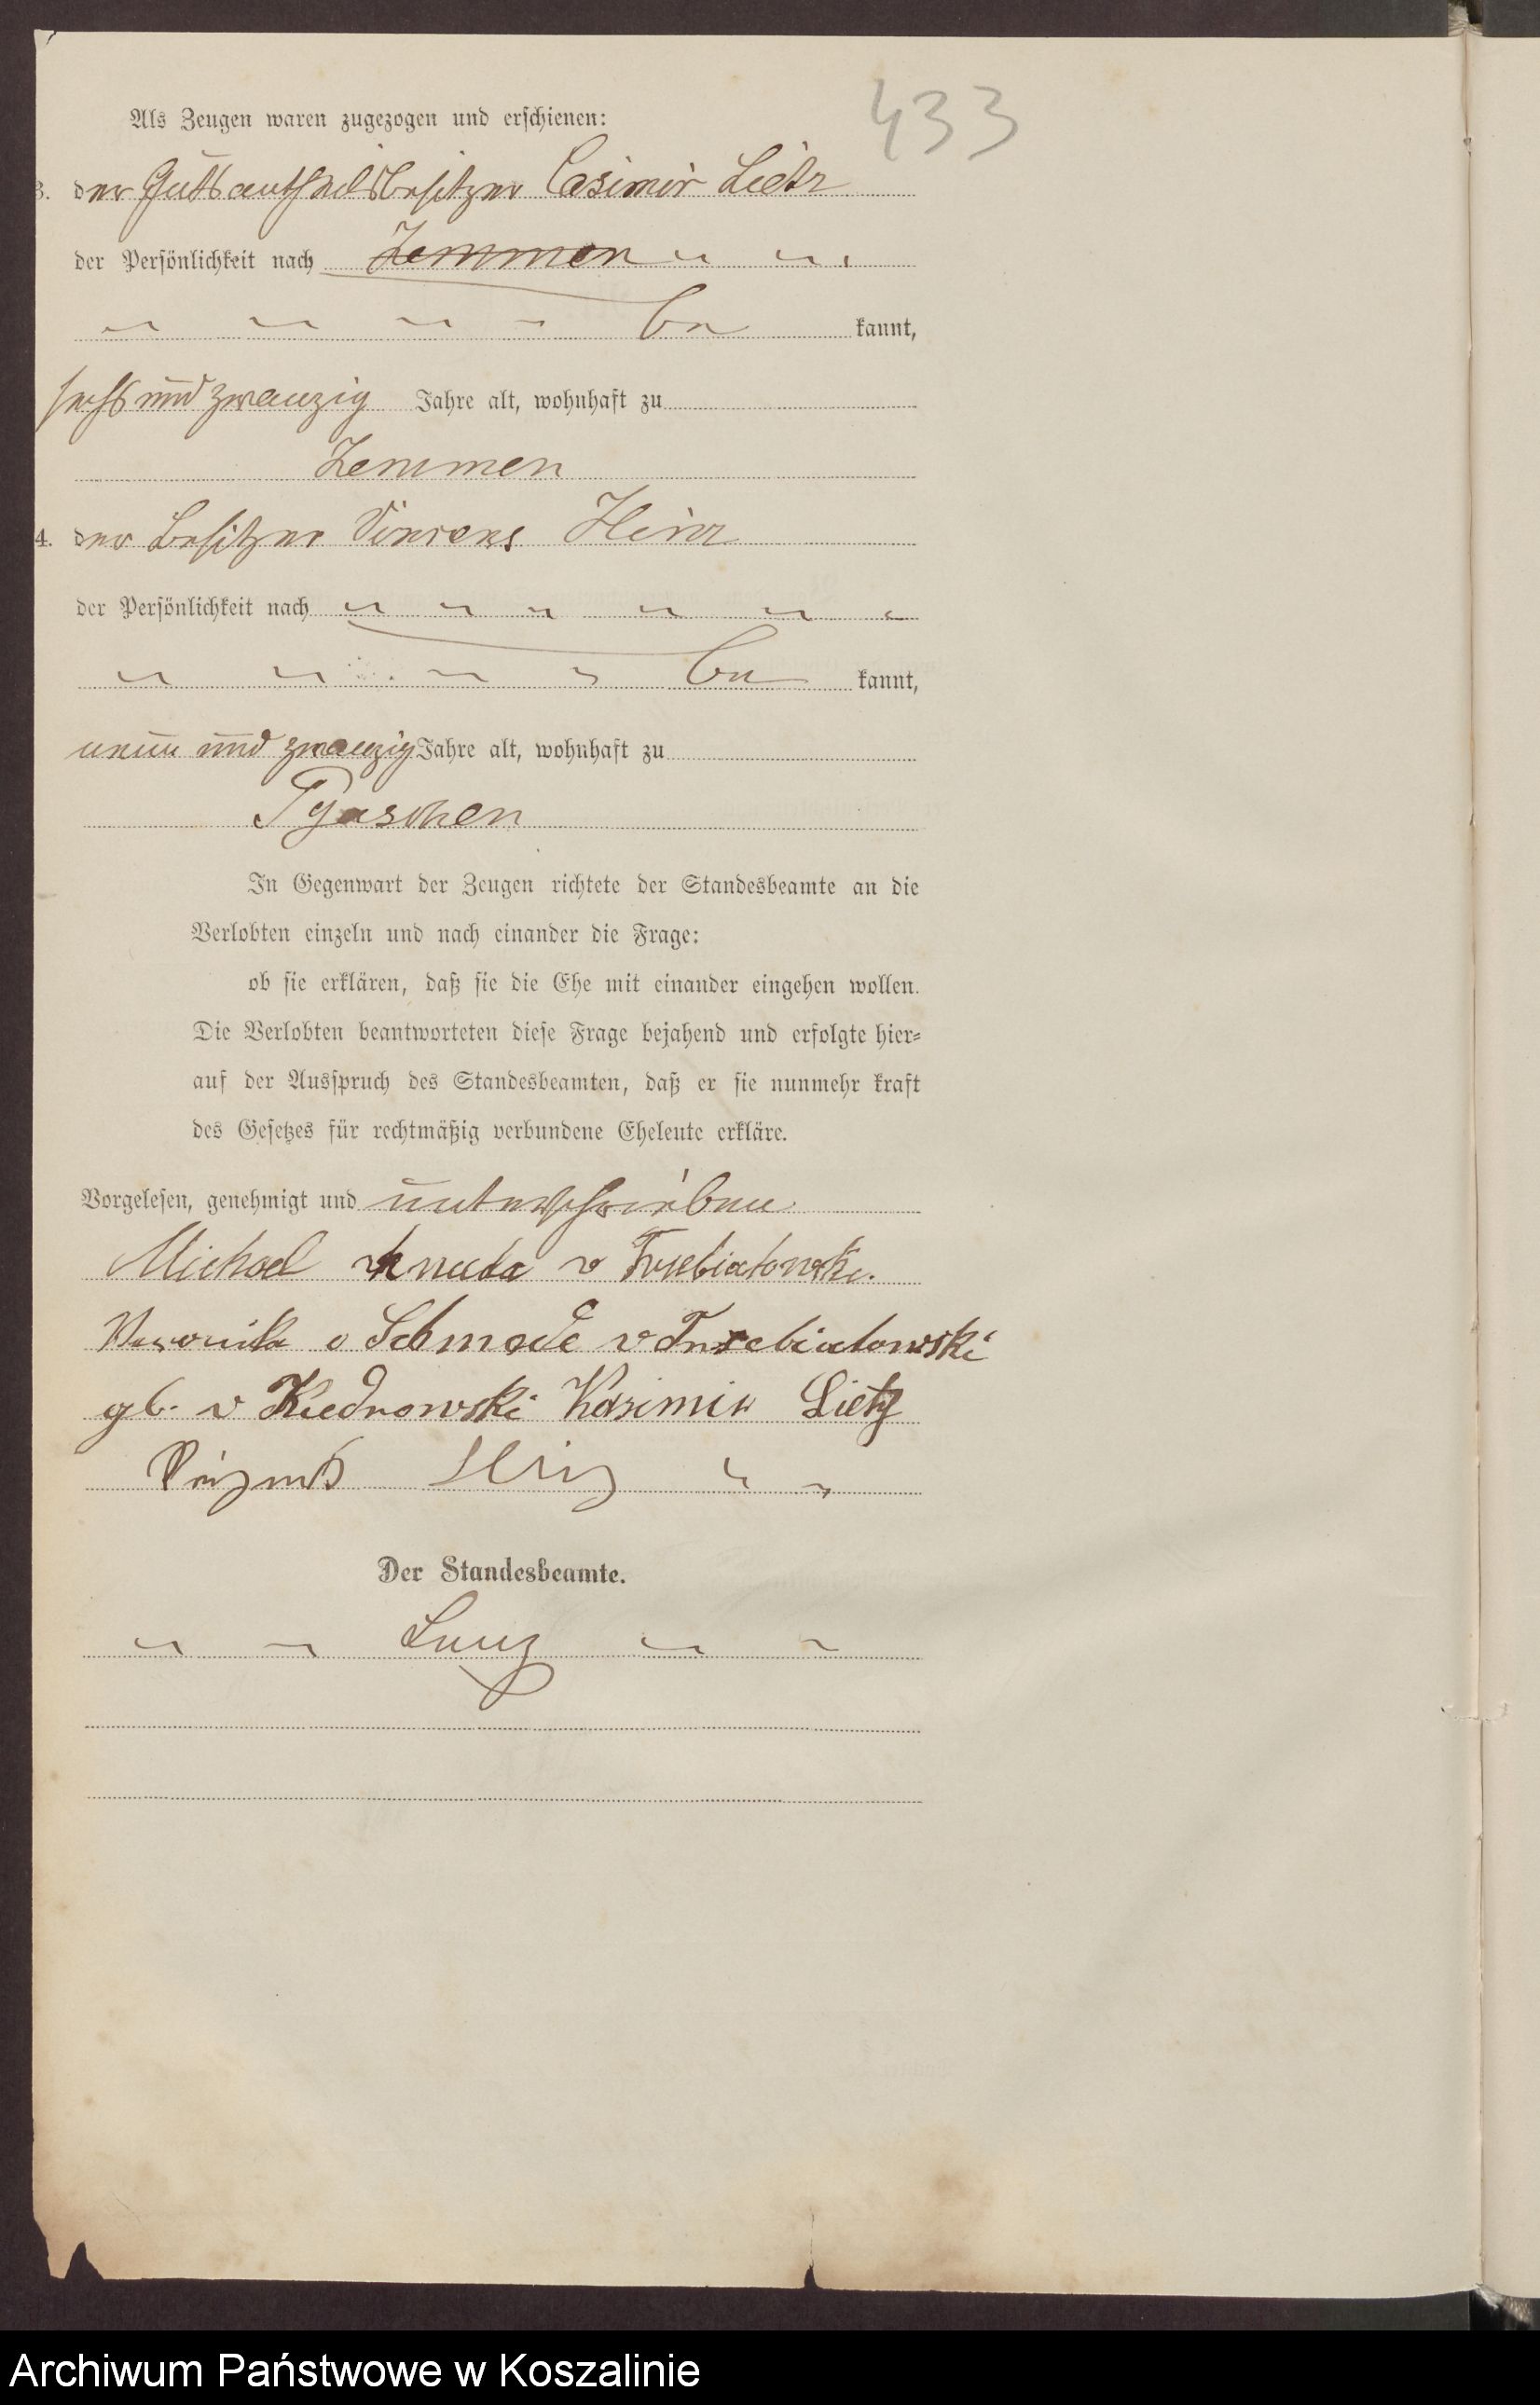 433
Als Zeugen waren zugezogen und erschienen:
3. der Gutsantheilsbesitzer Casimir Lietz
der Persönlichkeit nach Zemmen
be kannt,
sechs und zwanzig Jahre alt, wohnhaft zu
Zemmen
4. der Besitzer Vincens
der Persönlichkeit nach
be kannt,
neun und zwanzig Jahre alt, wohnhaft zu
Pyaschen
In Gegenwart der Zeugen richtete der Standesbeamte an die
Verlobten einzeln und nach einander die Frage:
ob sie erklären, daß sie die Ehe mit einander eingehen wollen.
Die Verlobten beantworteten diese Frage bejahend und erfolgte hier-
auf der Ausspruch des Standesbeamten, daß er sie nunmehr kraft
des Gesetzes für rechtmäßig verbundene Eheleute erkläre.
Vorgelesen, genehmigt und unterschrieben
Michael v Trzebiatowski.
v Schmode v Trzebiatowski
gb. v Kiedrowski Kasimir Lietz
Der Standesbeamte.
Archiwum Państwowe w Koszalinie